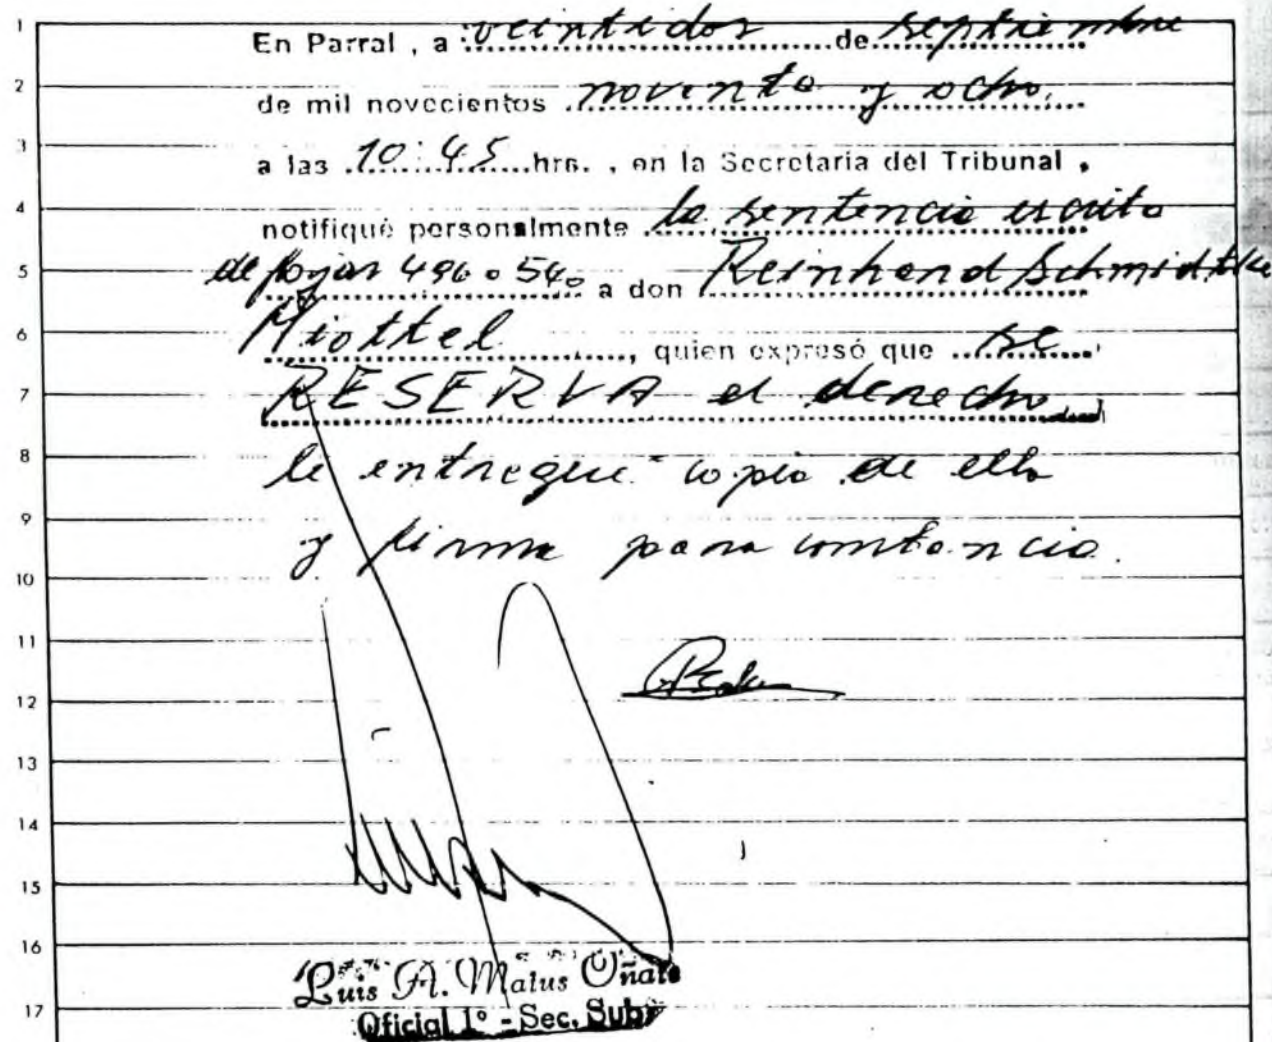 1 En Parral , a veintidos de septiembre
2 de mil novecientos noventa y ocho,
3 a las 10:45 hrs. , en la Secretaria del Tribunal ,
4 notifiqué personalmente la sentencia escrita
5 de fojas 496 a 540 a don Reinhard Schmidtke
6 Miottel , quien expresó que se
7 RESERVA el derecho
8 le entregue copia de ella
9 y firma para constancia.
10
11
12
13
14
15
16
Luis A. Matus Oñate
17 Oficial 1º - Sec. Subr